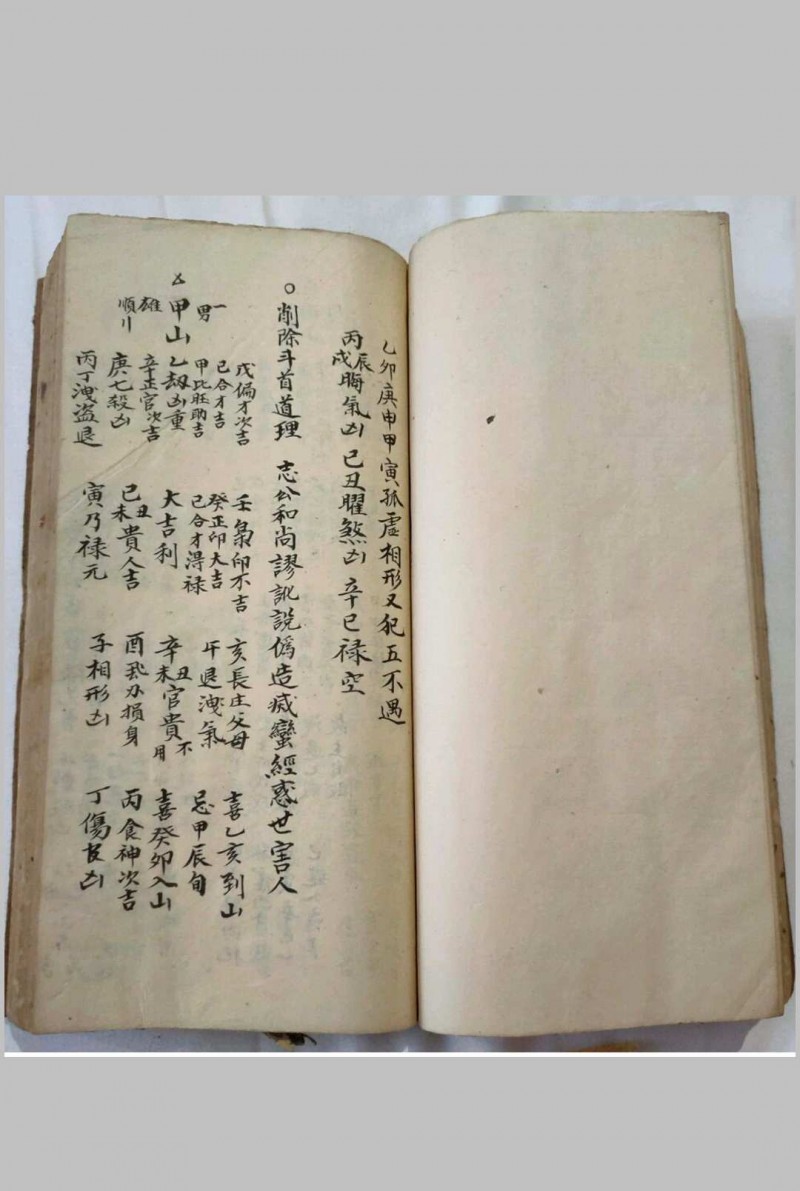 乙卯庚申甲寅孤虛相形又犯五不遇
丙辰戌晦氣凶 己丑曜煞凶 辛巳禄空
○削除斗首道理 志公和尚謬訛説偽造滅蠻經惑世害人
甲山
一男
雄
順川
戊偏才次吉
己合才吉
甲比旺助吉
乙劫凶重
辛正官次吉
庚七殺凶
丙丁洩盗退
壬梟印不吉
癸正印大吉
己合才得禄
大吉利
己丑未貴人吉
寅乃禄元
亥長庄父母
午退洩氣
辛丑未官貴不用
酉 損身
子相形凶
喜乙亥到山
忌甲辰旬
喜癸卯入山
丙食神次吉
丁傷官凶